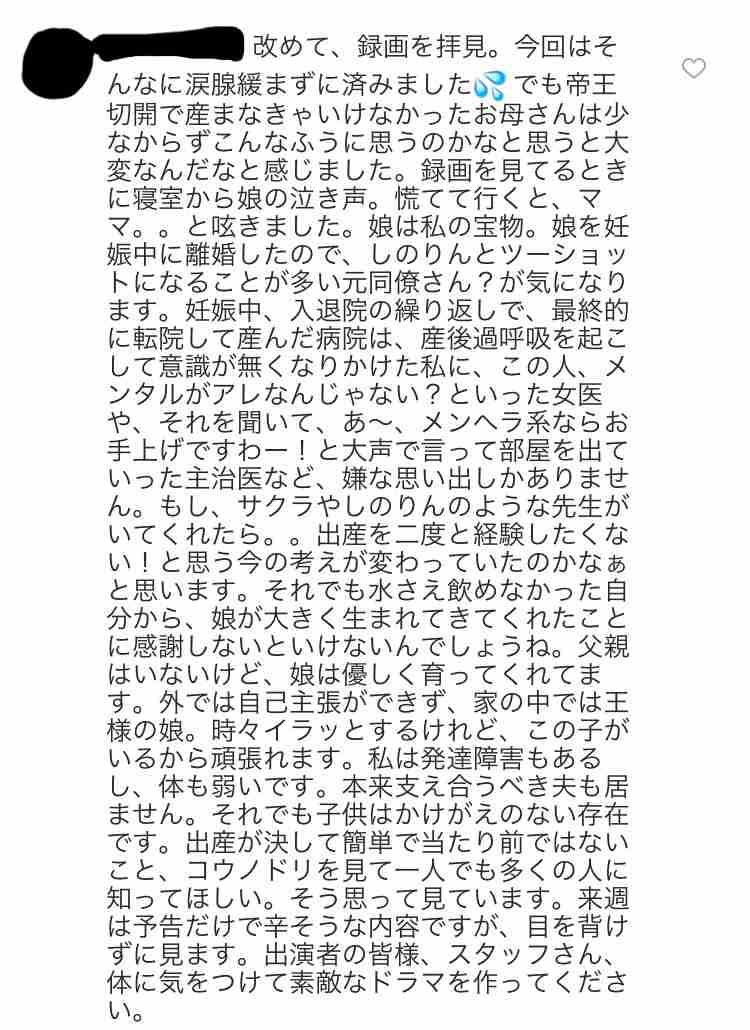 改めて、録画を拝見。今回はそ
んなに涙腺緩まずに済みました💦でも帝王
切開で産まなきゃいけなかったお母さんは少
なからずこんなふうに思うのかなと思うと大
変なんだなと感じました。録画を見てるとき
に寝室から娘の泣き声。慌てて行くと、マ
マ。。と呟きました。娘は私の宝物。娘を妊
娠中に離婚したので、しのりんとツーショッ
トになることが多い元同僚さん？が気になり
ます。妊娠中、入退院の繰り返しで、最終的
に転院して産んだ病院は、産後過呼吸を起こ
して意識が無くなりかけた私に、この人、メ
ンタルがアレなんじゃない？といった女医
や、それを聞いて、あ〜、メンヘラ系ならお
手上げですわー！と大声で言って部屋を出て
いった主治医など、嫌な思い出しかありませ
ん。もし、サクラやしのりんのような先生が
いてくれたら。。出産を二度と経験したくな
い！と思う今の考えが変わっていたのかなぁ
と思います。それでも水さえ飲めなかった自
分から、娘が大きく生まれてきてくれたこと
に感謝しないといけないんでしょうね。父親
はいないけど、娘は優しく育ってくれてま
す。外では自己主張ができず、家の中では王
様の娘。時々イラッとするけれど、この子が
いるから頑張れます。私は発達障害もある
し、体も弱いです。本来支え合うべき夫も居
ません。それでも子供はかけがえのない存在
です。出産が決して簡単で当たり前ではない
こと、コウノドリを見て一人でも多くの人に
知ってほしい。そう思って見ています。来週
は予告だけで辛そうな内容ですが、目を背け
ずに見ます。出演者の皆様、スタッフさん、
体に気をつけて素敵なドラマを作ってくださ
い。